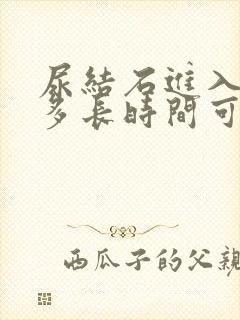 尿結石進入
多長時間可
西瓜子的父親